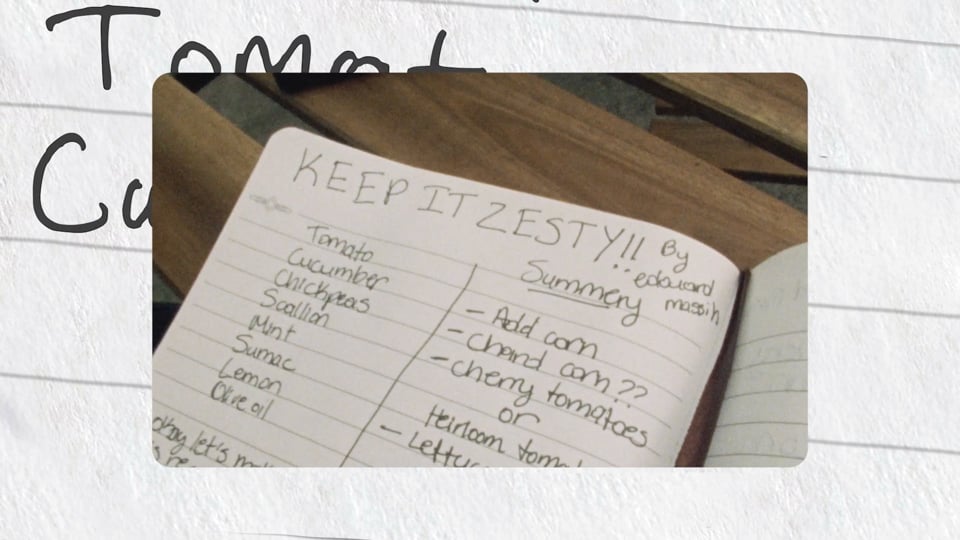 Tomat
Cu
KEEP IT ZESTY!!
By
edouard
massih
Tomato
Cucumber
Chickpeas
Scallion
Mint
Sumac
Lemon
Olive oil
okay let's
Summery
- Add corn
- Charid corn??
- Cherry tomatoes
or
Heirloom tomat
- Lettuc